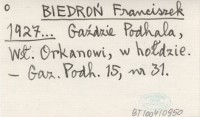 BIEDROŃ Franciszek
1927... Gaździe Podhala,
Wł. Orkanowi, w hołdzie.
– Gaz. Podh. 15, nr 31.